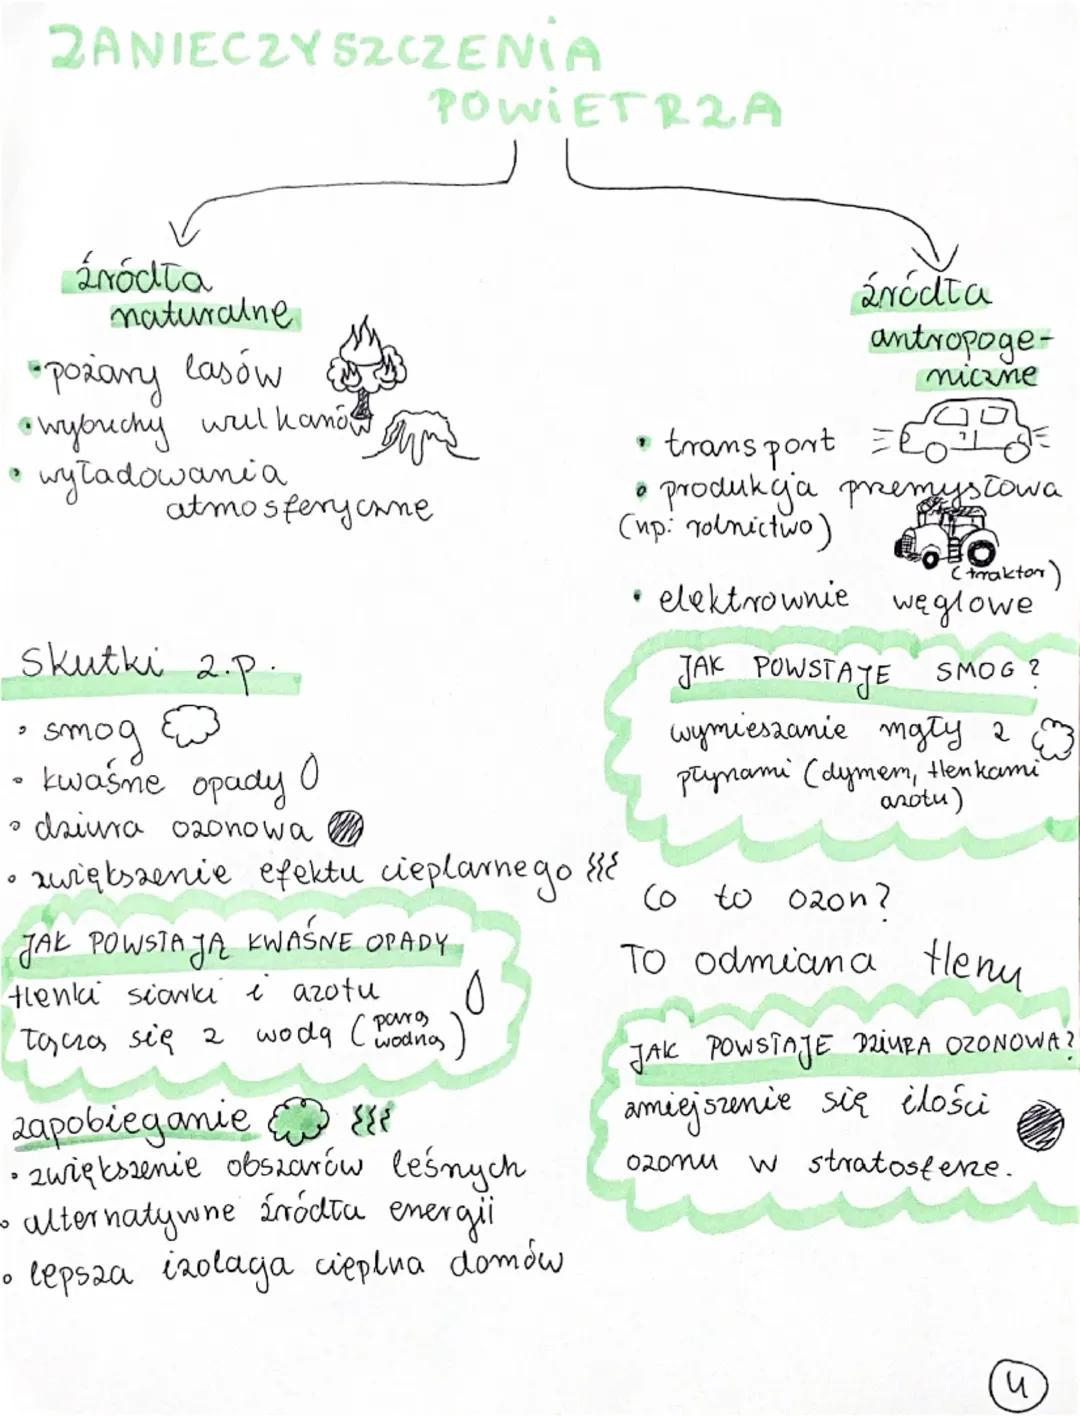 ZANIECZYSZCZENIA
POWIETRZA
źródła
naturalne
• pożary lasów
• wybuchy wulkanów
• wyładowania
atmosferyczne
źródła
antropoge-
niczne
• transport
• produkcja przemysłowa
(np: rolnictwo)
(traktor)
• elektrownie węglowe
Skutki z.p.
• smog
• kwaśne opady
• dziura ozonowa
• zwiększenie efektu cieplarnego
JAK POWSTAJĄ KWAŚNE OPADY
tlenki siarki i azotu
łączą się z wodą (parą
wodną)
zapobieganie
• zwiększenie obszarów leśnych
• alternatywne źródła energii
• lepsza izolacja cieplna domów
JAK POWSTAJE SMOG?
wymieszanie mgły z
płynami (dymem, tlenkami
azotu)
Co to ozon?
TO odmiana tlenu
JAK POWSTAJE DZIURA OZONOWA?
zmiejszenie się ilości
ozonu w stratosferze.
4